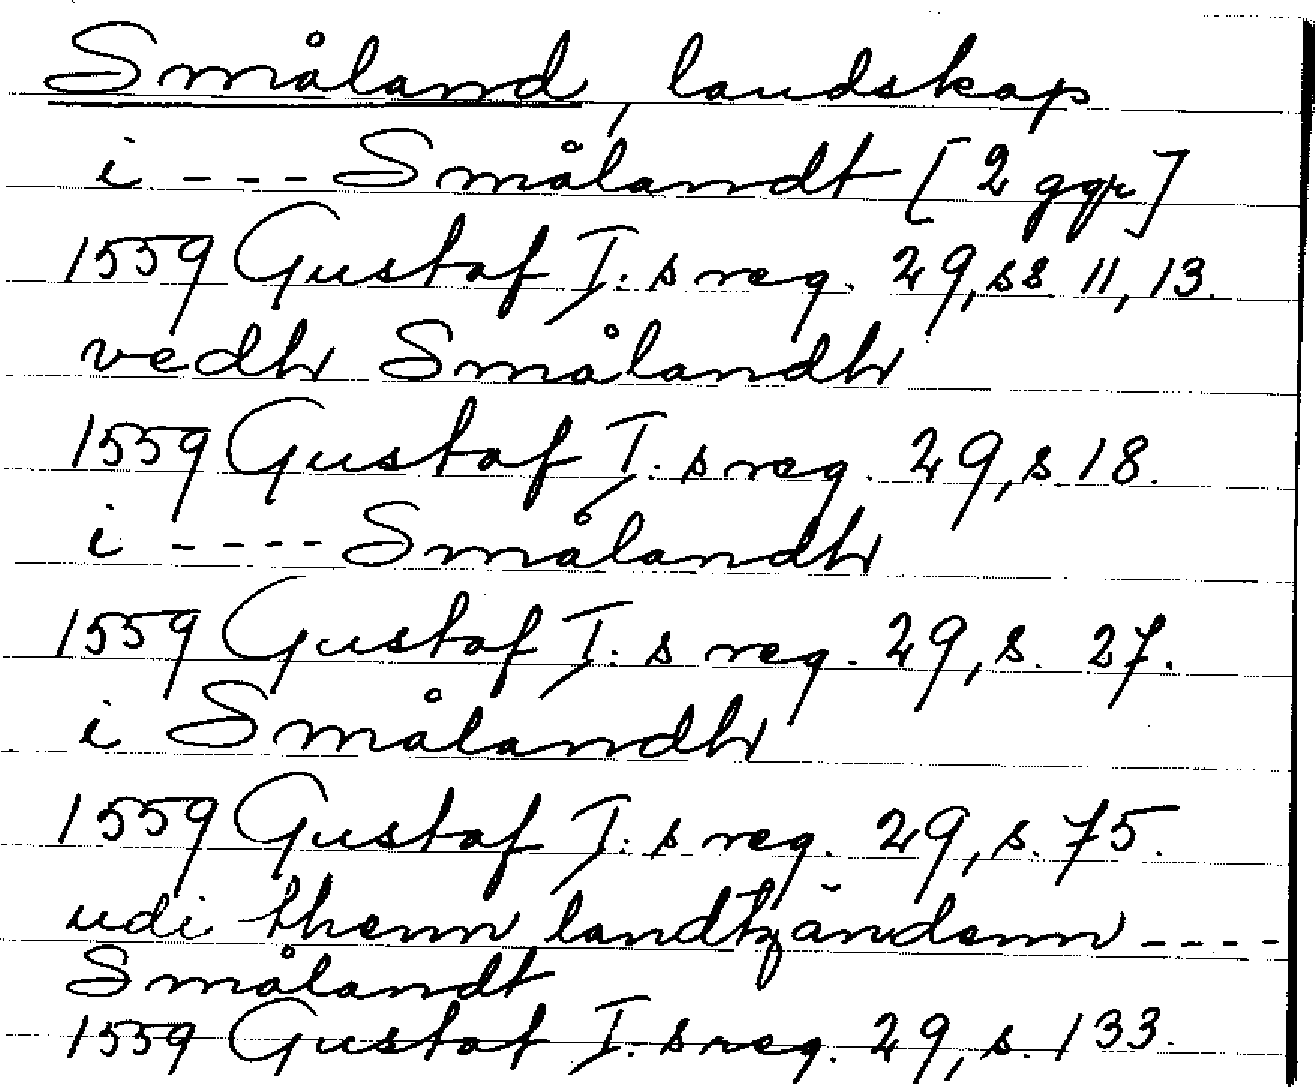 Småland, landskap
i - - - Smålandt [2 ggr]
1559 Gustaf I:s reg. 29, ss 11, 13.
vedh Smålandh
1559 Gustaf I:s reg. 29, s 18.
i - - - - Smålandh
1559 Gustaf I:s reg. 29, s. 27.
i Smålandh
1559 Gustaf I:s reg. 29, s. 75.
udi thenn landtzändenn - - - -
Smålandt
1559 Gustaf I:s reg. 29, s. 133.